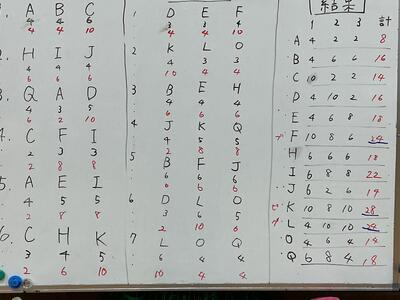 A B C
4 4 6
4 4 10
H I J
4 4 4
6 6 6
3. Q A D
4 3 5
6 2 10
4. C F I
2 3 3
2 8 8
5. A E I
4 5 5
2 8 8
6. C H K
2 4 5
2 6 10
1 D E F
3 3 4
4 4 10
2 K L O
4 3 3
10 4 4
3 B E H
4 4 4
6 6 6
4 J K Q
4 5 5
2 8 8
5 B F J
6 6 6
6 D L O
3 6 5
2 10 6
7 L O Q
6 4 4
10 4 4
結果
1 2 3 計
A 4 2 2 8
B 4 6 6 16
C 10 2 2 14
D 4 10 2 16
E 4 6 8 18
F 10 8 6 24
H 6 6 6 18
I 6 8 8 22
J 6 2 6 14
K 10 8 10 28
L 4 10 10 24
O 4 6 4 14
Q 6 8 4 18